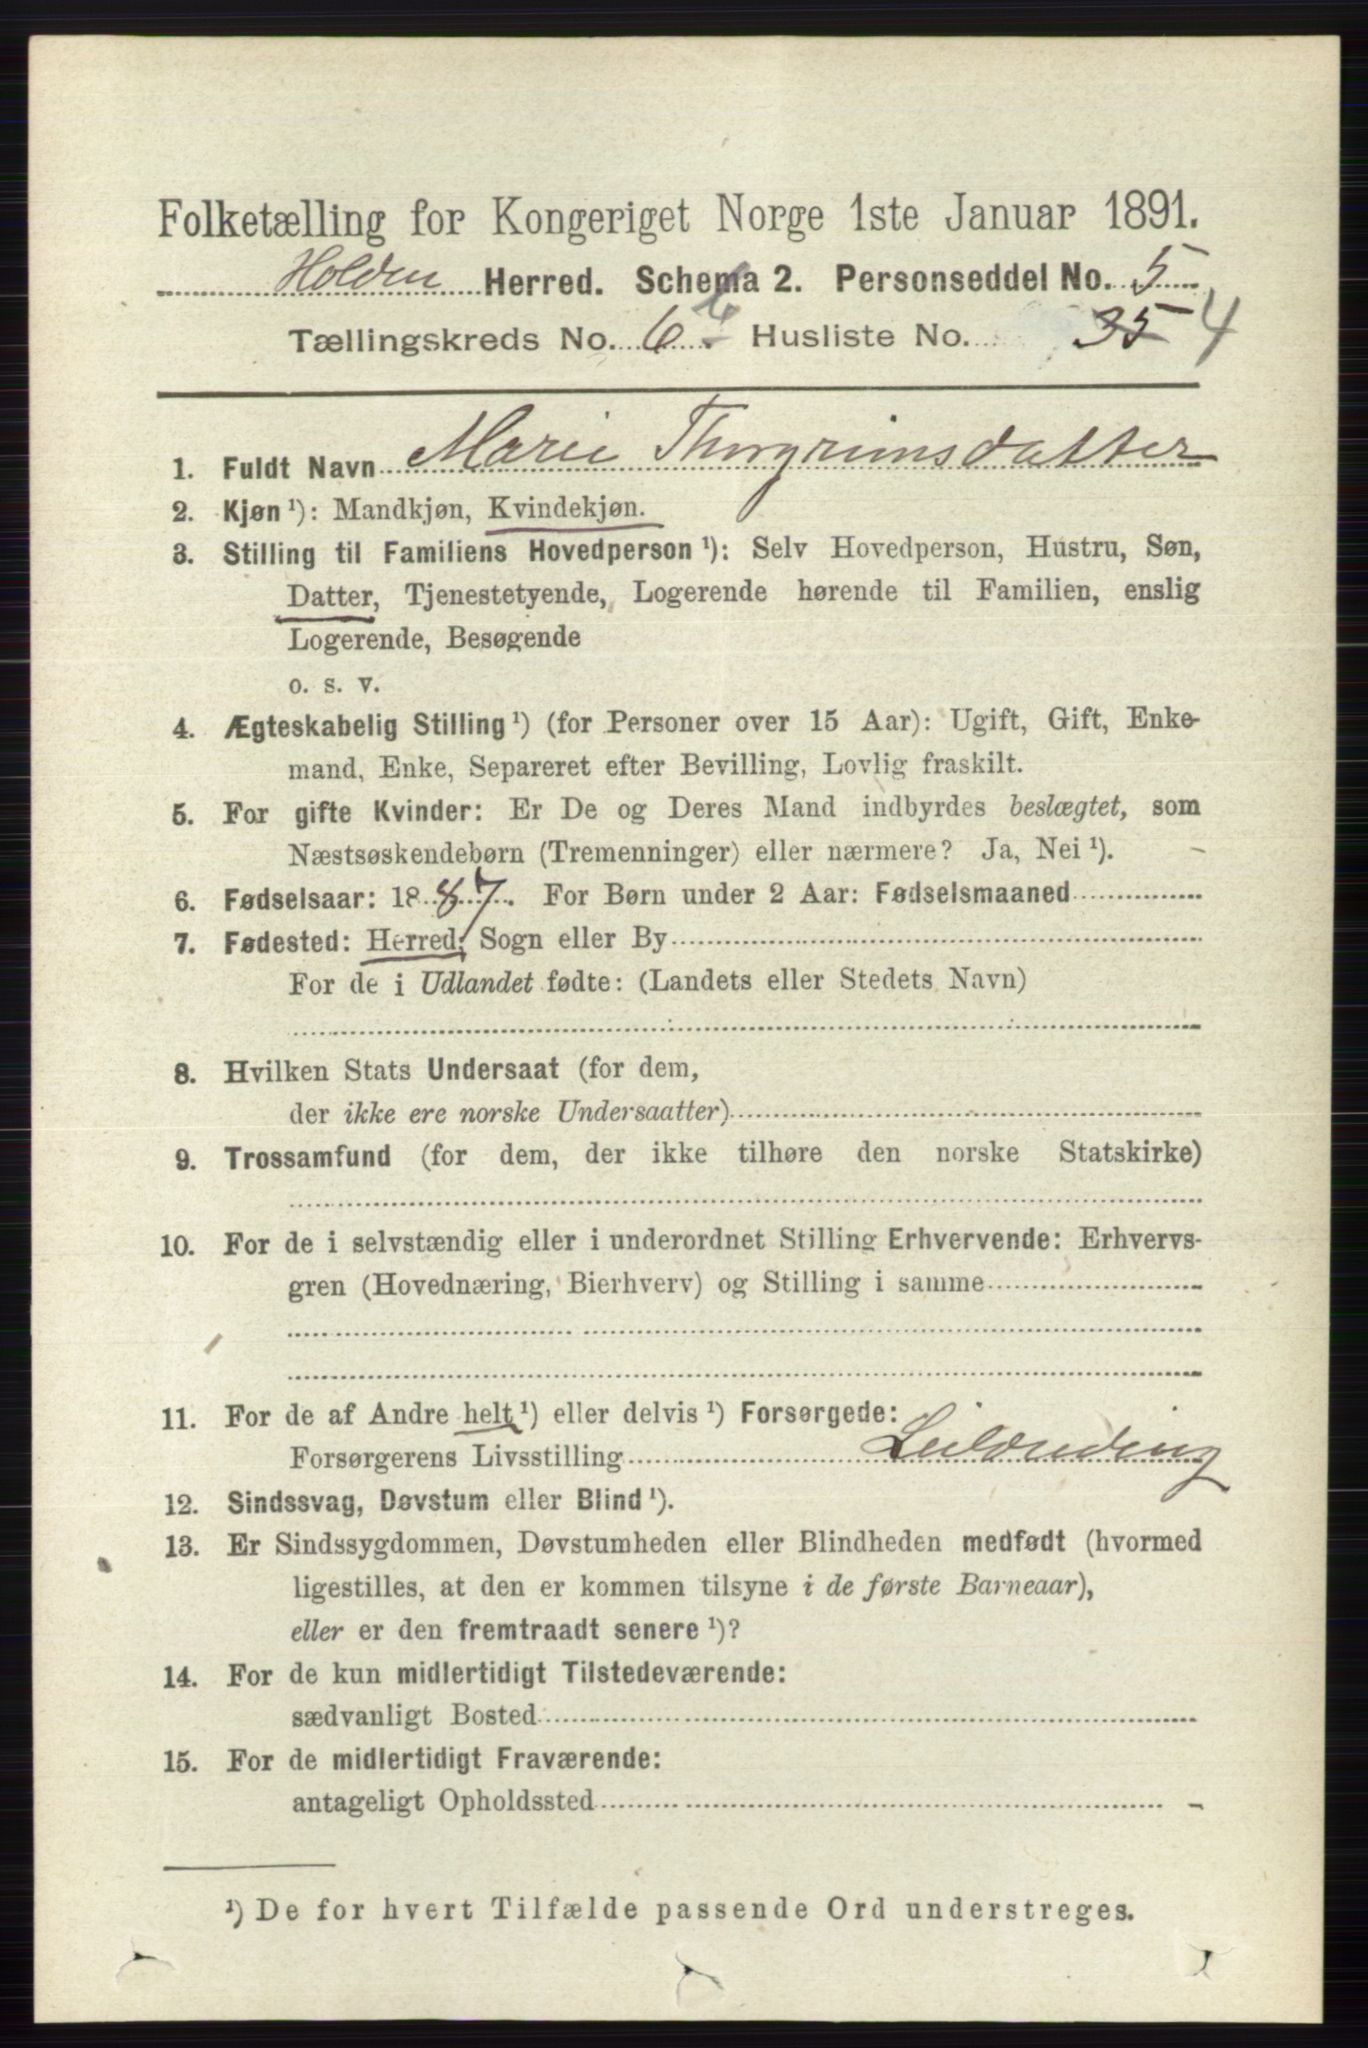 Folketælling for Kongeriget Norge 1ste Januar 1891.
Holden Herred. Schema 2. Personseddel No. 5
Tællingskreds No. 6 Husliste No. 35 4
1. Fuldt Navn Marie Thorgrimsdatter
2. Kjøn ¹): Mandkjøn, Kvindekjøn.
3. Stilling til Familiens Hovedperson ¹): Selv Hovedperson, Hustru, Søn,
Datter, Tjenestetyende, Logerende hørende til Familien, enslig
Logerende, Besøgende
o. s. v.
4. Ægteskabelig Stilling ¹) (for Personer over 15 Aar): Ugift, Gift, Enke-
mand, Enke, Separeret efter Bevilling, Lovlig fraskilt.
5. For gifte Kvinder: Er De og Deres Mand indbyrdes beslægtet, som
Næstsøskendebørn (Tremenninger) eller nærmere? Ja, Nei ¹).
6. Fødselsaar: 1887. For Børn under 2 Aar: Fødselsmaaned
7. Fødested: Herred, Sogn eller By
For de i Udlandet fødte: (Landets eller Stedets Navn)
8. Hvilken Stats Undersaat (for dem,
der ikke ere norske Undersaatter)
9. Trossamfund (for dem, der ikke tilhøre den norske Statskirke)
10. For de i selvstændig eller i underordnet Stilling Erhvervende: Erhvervs-
gren (Hovednæring, Bierhverv) og Stilling i samme
11. For de af Andre helt ¹) eller delvis ¹) Forsørgede:
Forsørgerens Livsstilling Leilænding
12. Sindssvag, Døvstum eller Blind ¹).
13. Er Sindssygdommen, Døvstumheden eller Blindheden medfødt (hvormed
ligestilles, at den er kommen tilsyne i de første Barneaar),
eller er den fremtraadt senere ¹)?
14. For de kun midlertidigt Tilstedeværende:
sædvanligt Bosted
15. For de midlertidigt Fraværende:
antageligt Opholdssted
¹) De for hvert Tilfælde passende Ord understreges.